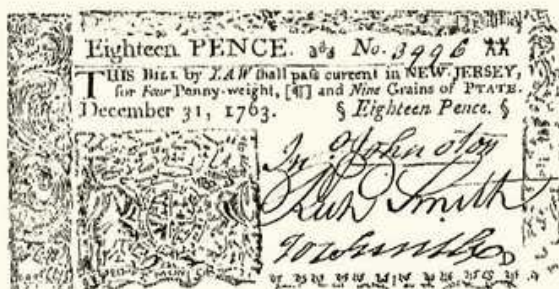 Eighteen PENCE. No. 3996
THIS BILL by LAW shall pass current in NEW-JERSEY,
for Four Penny-weight, and Nine Grains of PLATE.
December 31, 1763. § Eighteen Pence. §
Johnston
Smith